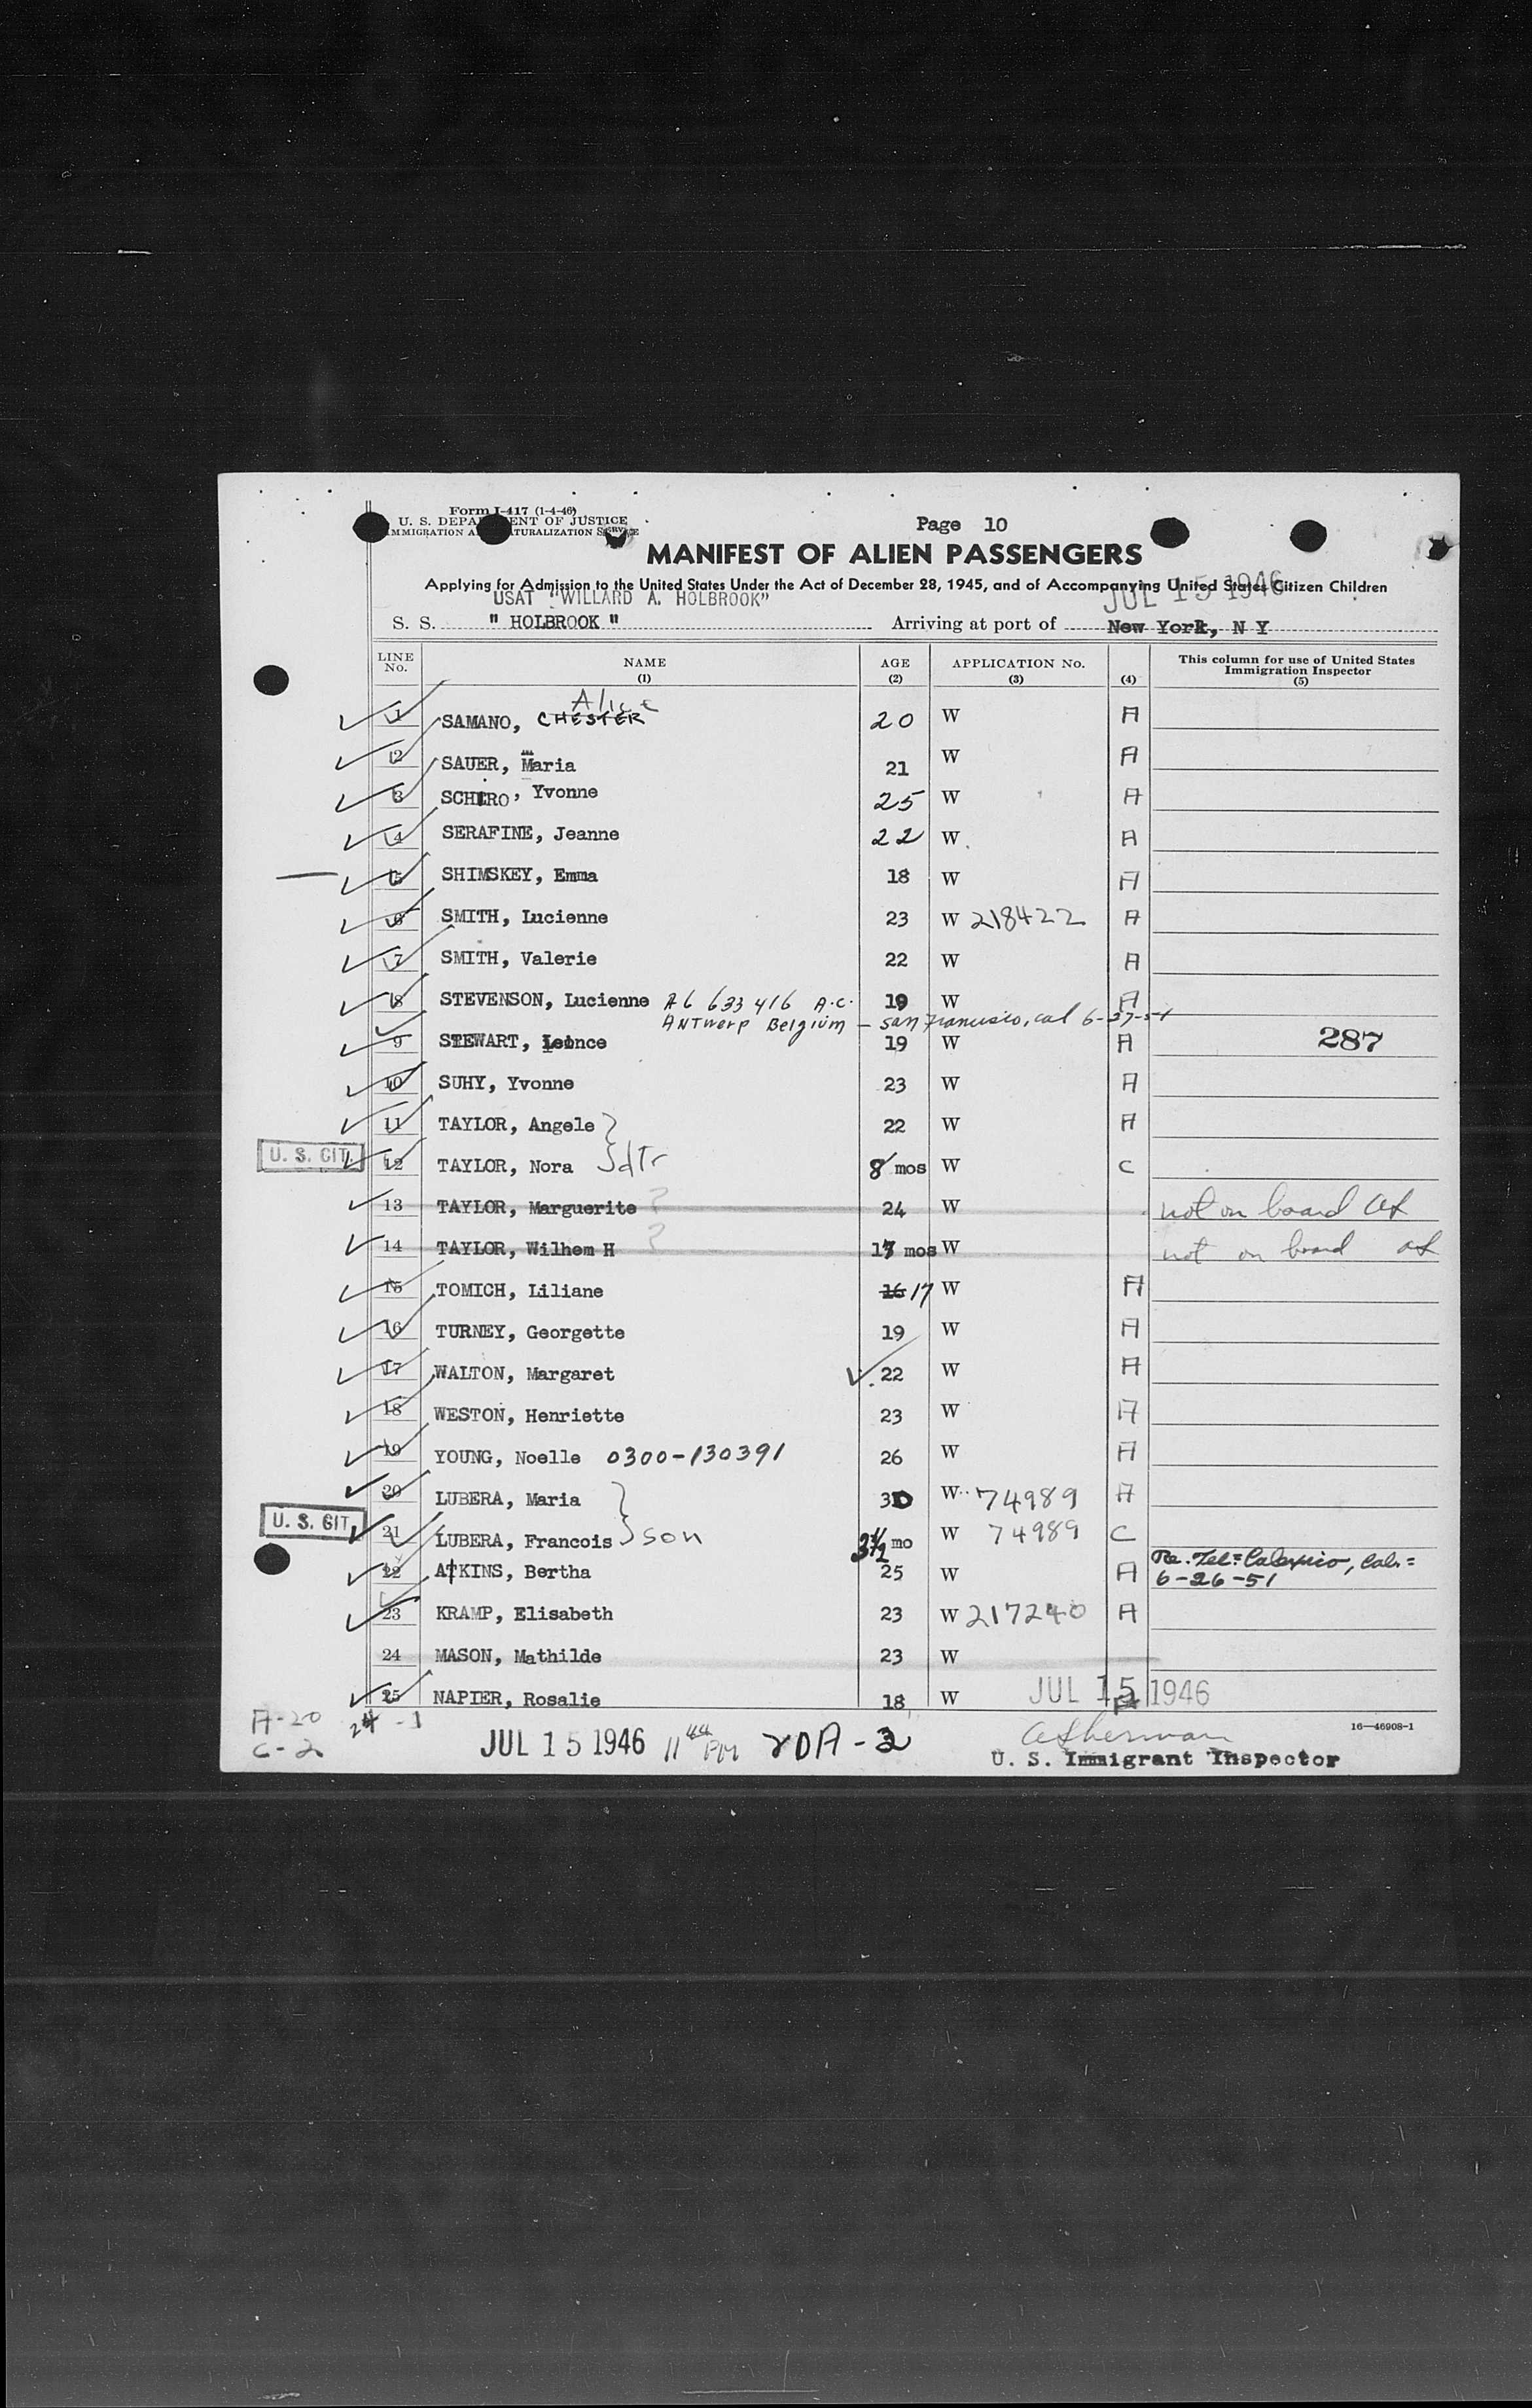 Form I-417 (1-4-46)
U. S. DEPARTMENT OF JUSTICE
IMMIGRATION AND NATURALIZATION SERVICE
Page 10
MANIFEST OF ALIEN PASSENGERS
Applying for Admission to the United States Under the Act of December 28, 1945, and of Accompanying United States Citizen Children
USAT "WILLARD A. HOLBROOK" JUL 15 1946
S. S. " HOLBROOK " Arriving at port of New York, N Y
LINE No. NAME (1) AGE (2) APPLICATION No. (3) (4) This column for use of United States Immigration Inspector (5)
Alice
1 SAMANO, CHESTER 20 W A
2 SAUER, Maria 21 W A
3 SCHIRO, Yvonne 25 W A
4 SERAFINE, Jeanne 22 W A
5 SHIMSKEY, Emma 18 W A
6 SMITH, Lucienne 23 W 218422 A
7 SMITH, Valerie 22 W A
8 STEVENSON, Lucienne A6 633 416 A.C. 19 W A
Antwerp Belgium - San Francisco, cal 6-27-51
9 STEWART, Leonce 19 W A 287
10 SUHY, Yvonne 23 W A
11 TAYLOR, Angele 22 W A
U. S. CIT. 12 TAYLOR, Nora dtr 8 mos W C
13 TAYLOR, Marguerite ? 24 W not on board
14 TAYLOR, Wilhem H ? 17 mos W not on board
15 TOMICH, Liliane 16 17 W A
16 TURNEY, Georgette 19 W A
17 WALTON, Margaret 22 W A
18 WESTON, Henriette 23 W A
19 YOUNG, Noelle 0300-130391 26 W A
20 LUBERA, Maria 30 W 74989 A
U. S. CIT. 21 LUBERA, Francois son 3½ mo W 74989 C
22 ATKINS, Bertha 25 W A Re. Tel= Calexico, Cal.= 6-26-51
23 KRAMP, Elisabeth 23 W 217240 A
24 MASON, Mathilde 23 W
25 NAPIER, Rosalie 18 W A
JUL 15 1946
A-20 24 -1
C-2 JUL 15 1946 11 44 PM
16—46908-1
U. S. Immigrant Inspector